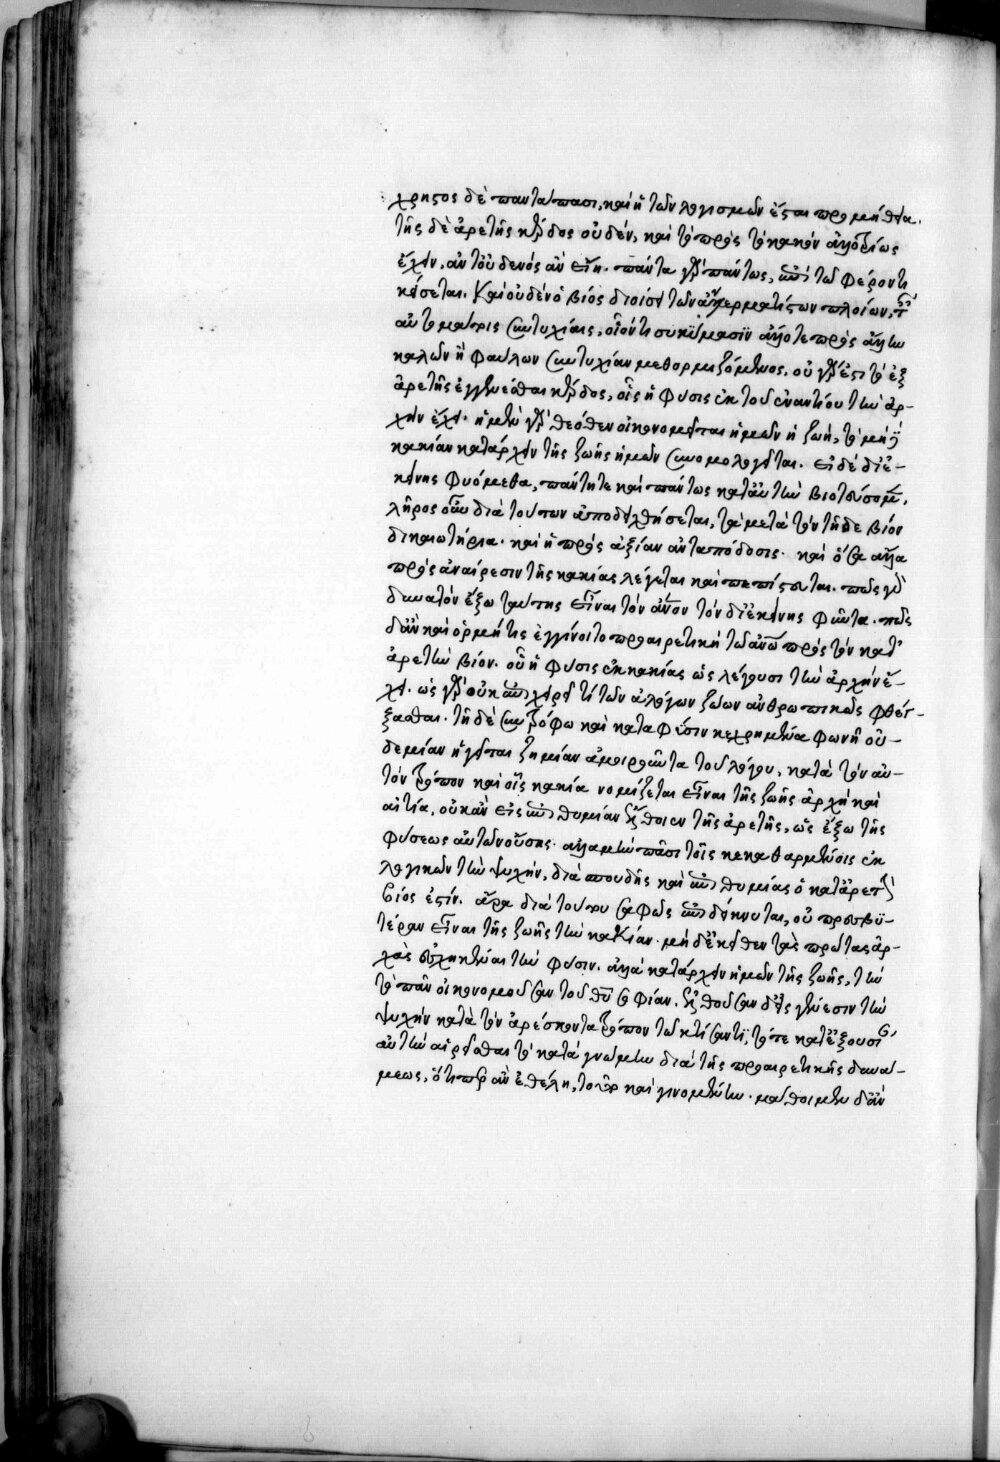 χρηστος δὲ πανταπασι, καὶ ἡ τῶν λογισμῶν ἔσται προμήθεια.
τῆς δὲ ἀρετῆς κέρδος οὐδέν, καὶ τὸ πρὸς τὸ κακὸν ἀλλοτρίως
ἔχειν, ἀντ' οὐδενὸς ἂν εἴη. πάντα γὰρ πάντως, ἐπὶ τῶ φέροντι
κείσεται. καὶ οὐδὲν ὁ βίος διοίσει τῶν ἀνερματίστων πλοίων, ταῖς
αὐτομάτοις συντυχίαις, οἷόν τισι κύμασϊν ἄλλοτε πρὸς ἄλλην
καλῶν ἢ φαύλων συντυχίαν μεθορμιζόμενος. οὐ γὰρ ἔστι τὸ ἐξ
ἀρετῆς ἐγγενέσθαι κέρδος, οἷς ἡ φύσις ἐκ τοῦ ἐναντίου τὴν ἀρ-
χὴν ἔχει. ἡ μὲν γὰρ θεόθεν οἰκονομεῖται ἡμῶν ἡ ζωή, τὸ μὴ
κακίαν κατάρχειν τῆς ζωῆς ἡμῶν συνομολογεῖται. εἰ δὲ δι' ἐ-
κείνης φυόμεθα, πάντη τε καὶ πάντως κατ' αὐτὴν βιοτεύσομεν.
λῆρος οὖν διὰ τούτων ἀποδειχθήσεται, τὰ μετὰ τὸν τῆδε βίον
δικαιωτήρια. καὶ ἡ πρὸς ἀξίαν ἀνταπόδοσις. καὶ ὅσα ἄλλα
πρὸς ἀναίρεσιν τῆς κακίας λέγεται καὶ πεπίστευται. πῶς γὰρ
δυνατὸν ἔξω ταύτης εἶναι τὸν ἄνον τὸν δι' ἐκείνης φύντα. πῶς
δ' ἂν καὶ ὁρμή τις ἐγγίνοιτο προαιρετικὴ τῶ ἀνω πρὸς τὸν κατ'
ἀρετὴν βίον. οὗ ἡ φύσις ἐκ κακίας ὡς λέγουσι τὴν ἀρχὴν ἔ-
χει. ὡς γὰρ οὐκ ἐπιχειρεῖ τι τῶν ἀλόγων ζώων ἀνθρωπικῶς φθέγ-
ξασθαι. τῆ δὲ συντρόφω καὶ κατα φύσιν κεχρημένα φωνῆ οὐ-
δεμίαν ἡγεῖται ζημίαν ἀμοιροῦντα τοῦ λόγου, κατὰ τὸν αὐ-
τὸν τρόπον καὶ οἷς κακία νομίζεται εἶναι τῆς ζωῆς ἀρχὴ καὶ
αἰτία, οὐκ ἂν εἰς ἐπιθυμίαν ἔλθοιεν τῆς ἀρετῆς, ὡς ἔξω τῆς
φύσεως αὐτῶν οὔσης. ἀλλα μὴν πᾶσι τοῖς κεκαθαρμένοις ἐκ
λογισμῶν τὴν ψυχὴν, διὰ σπουδῆς καὶ ἐπιθυμίας ὁ κατ' ἀρετὴν
βίος ἐστίν. ἄρα διὰ τούτου σαφῶς ἐπιδείκνυται, οὐ πρεσβϋ-
τέραν εἶναι τῆς ζωῆς τὴν κακίαν. μὴ δ' ἐκεῖθεν τὰς πρώτας ἀρ-
χὰς ἐσχηκέναι τὴν φύσιν. ἀλλὰ κατάρχειν ἡμῶν τῆς ζωῆς, τὴν
τὸ πᾶν οἰκονομοῦσαν τοῦ θυ σοφίαν. ἐλθοῦσαν δ' εἰς γένεσιν τὴν
ψυχὴν κατὰ τὸν ἀρέσκοντα τρόπον τῶ κτίσαντι, τότε κατ' ἐξουσίαν
αὐτὴν αἱρεῖσθαι τὸ κατὰ γνώμην διὰ τῆς προαιρετικῆς δυνά-
μεως, ὅτιπερ ἂν ἐθέλη, τοῦτο καὶ γινομένην. μάθοιμεν δ' ἂν